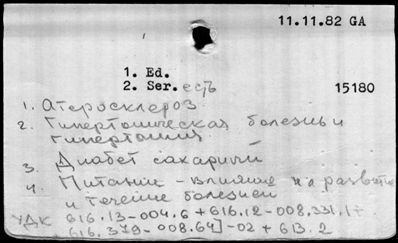 11.11.82 GA
1. Ed.
2. Ser. есть
15180
1. Атеросклероз
2. Гипертоническая болезнь и
гипертония
3. Диабет сахарный
4. Питание - влияние на развитие
и течение болезней
УДК 616.13-004.6+616.12-008.331.1+
616.379-008.64]-02+613.2